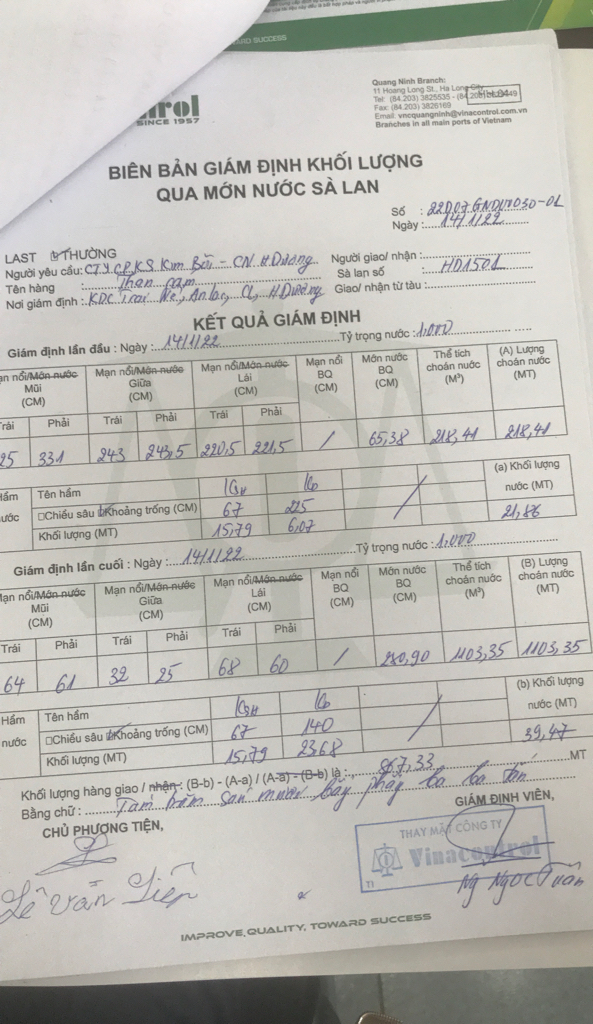 WARD SUCCESS
ntrol
SINCE 1957
Quang Ninh Branch:
11 Hoang Long St., Ha Long City
Tel: (84.203) 3825535 - (84.203)
Fax: (84.203) 3826169
Email: vncquangninh@vinacontrol.com.vn
Branches in all main ports of Vietnam
BIÊN BẢN GIÁM ĐỊNH KHỐI LƯỢNG
QUA MỚN NƯỚC SÀ LAN
Số : 22D07GND17030-01
Ngày : 14/1/22
LAST THƯỜNG
Người yêu cầu: CTY CPKS Kim Bôi - CN. H Dương Người giao/ nhận :
Tên hàng Than cám Sà lan số : HD1501
Nơi giám định : KDC Trai Nẻ, An lạc, CL, H Dương Giao/ nhận từ tàu :
KẾT QUẢ GIÁM ĐỊNH
Giám định lần đầu : Ngày : 14/1/22 Tỷ trọng nước : 1,000
ạn nổi/Mớn nước Mũi (CM) Mạn nổi/Mớn nước Giữa (CM) Mạn nổi/Mớn nước Lái (CM) Mạn nổi BQ (CM) Mớn nước BQ (CM) Thể tích choán nước (M³) (A) Lượng choán nước (MT)
rái Phải Trái Phải Trái Phải
25 331 243 243,5 220,5 221,5 / 65,38 218,41 218,41
Hầm nước Tên hầm KSH Kp (a) Khối lượng nước (MT)
Chiều sâu Khoảng trống (CM) 67 225 21,86
Khối lượng (MT) 15,79 6,07
Giám định lần cuối : Ngày : 14/1/22 Tỷ trọng nước : 1,000
Mạn nổi/Mớn nước Mũi (CM) Mạn nổi/Mớn nước Giữa (CM) Mạn nổi/Mớn nước Lái (CM) Mạn nổi BQ (CM) Mớn nước BQ (CM) Thể tích choán nước (M³) (B) Lượng choán nước (MT)
Trái Phải Trái Phải Trái Phải
64 61 32 25 68 60 / 280,90 1103,35 1103,35
Hầm nước Tên hầm KSH Kp (b) Khối lượng nước (MT)
Chiều sâu Khoảng trống (CM) 67 140 39,47
Khối lượng (MT) 15,79 23,68
Khối lượng hàng giao / nhận : (B-b) - (A-a) / (A-a) - (B-b) là : 867,33 MT
Bằng chữ : Tám trăm sáu mươi bảy phẩy ba ba tấn
CHỦ PHƯƠNG TIỆN, GIÁM ĐỊNH VIÊN,
THAY MẶT CÔNG TY
Vinacontrol
Lê Văn Tiếp Ng Ngọc Tuấn
IMPROVE QUALITY, TOWARD SUCCESS